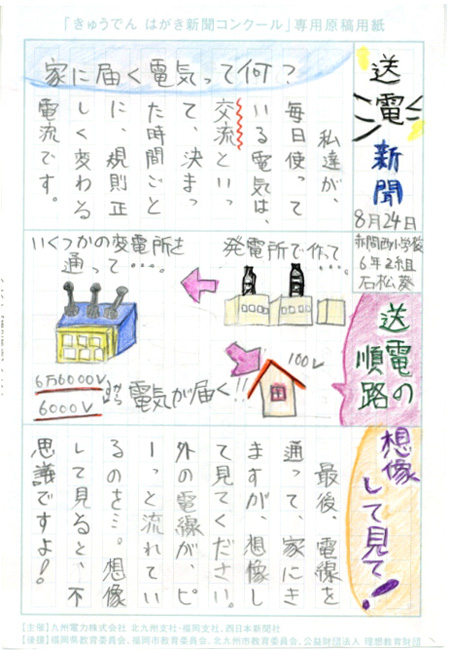 「きゅうでん はがき新聞コンクール」専用原稿用紙
送電新聞
8月24日
赤間西小学校
6年2組
石松葵
家に届く電気って何？
私達が、
毎日使って
いる電気は、
交流といっ
て、決まっ
た時間ごと
に、規則正
しく変わる
電流です。
送電の
順路
発電所で作って、…
いくつかの変電所を
通って…
6万6000V
から
6000V
電気が届く!!
100V
想像
して見て!
最後、電線を
通って、家にき
ますが、想像し
て見てください。
外の電線が、ピ
ーっと流れてい
るのを…。想像
して見ると、不
思議ですよ!
【主催】九州電力株式会社 北九州支社・福岡支社、西日本新聞社
【後援】福岡県教育委員会、福岡市教育委員会、北九州市教育委員会、公益財団法人 理想教育財団